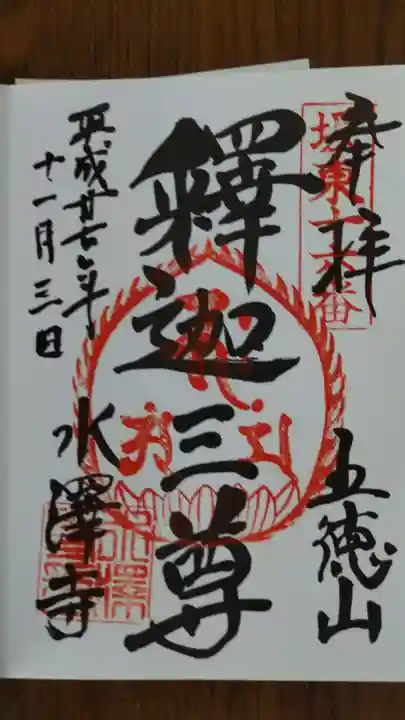 奉拝
坂東十六番
五徳山
釋迦三尊
水澤寺
平成廿七年
十一月三日